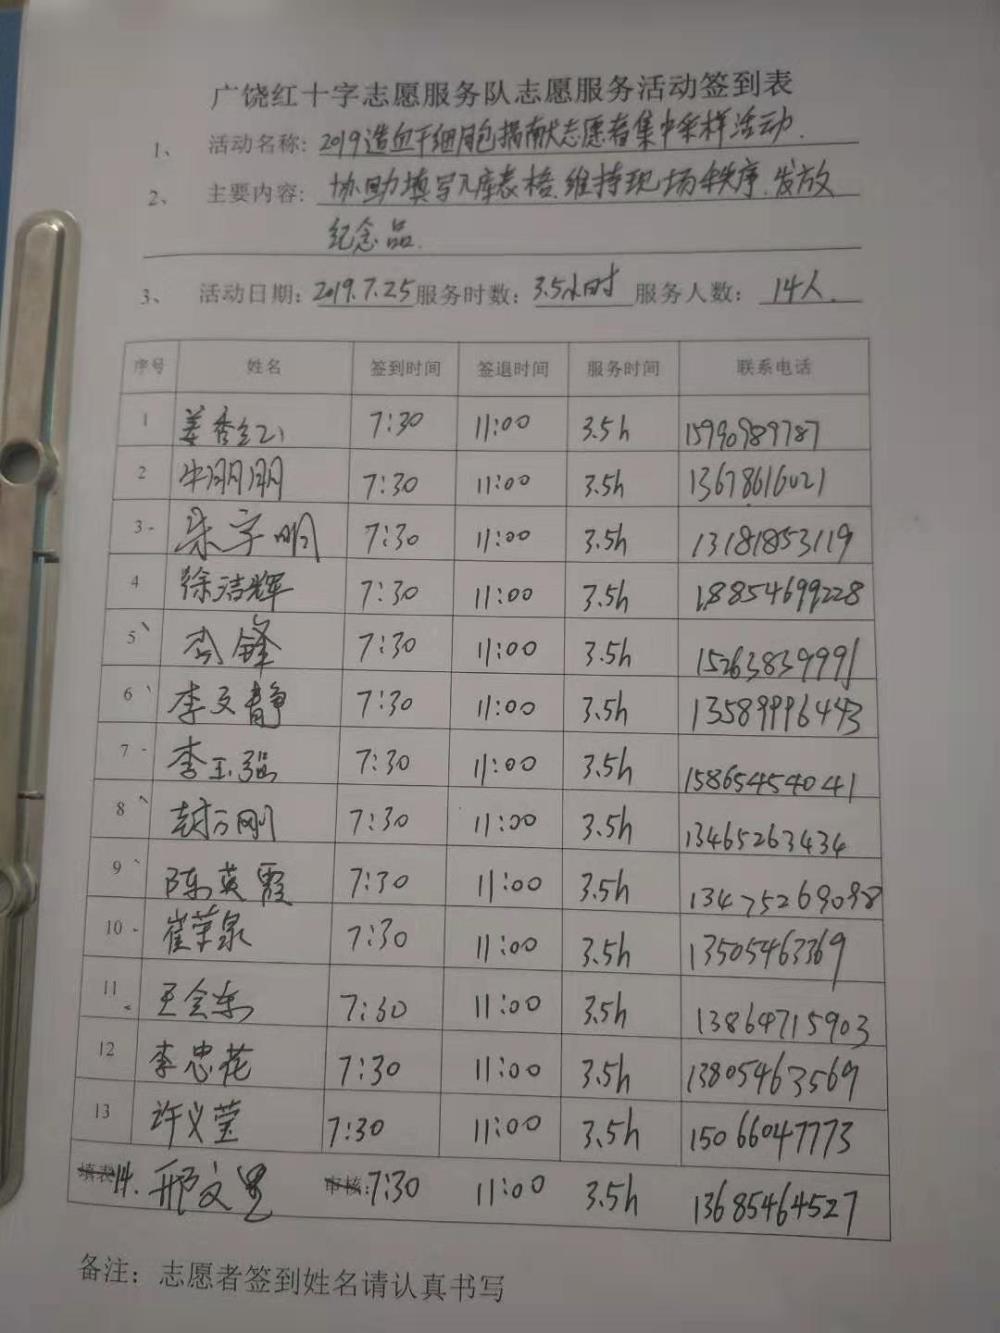 广饶红十字志愿服务队志愿服务活动签到表
1、 活动名称: 2019造血干细胞捐献志愿者集中采样活动.
2、 主要内容: 协助填写入库表格.维持现场秩序.发放
纪念品.
3、 活动日期: 2019.7.25 服务时数: 3.5小时 服务人数: 14人.
序号 姓名 签到时间 签退时间 服务时间 联系电话
1 姜秀红 7:30 11:00 3.5h 15990989787
2 牛朋朋 7:30 11:00 3.5h 13678616021
3 朱宇明 7:30 11:00 3.5h 13181853119
4 徐洁辉 7:30 11:00 3.5h 18854699228
5 锋 7:30 11:00 3.5h 15263839991
6 李文静 7:30 11:00 3.5h 13589996443
7 李玉强 7:30 11:00 3.5h 15865454041
8 封万刚 7:30 11:00 3.5h 13465263434
9 陈英霞 7:30 11:00 3.5h 13475269098
10 崔苹泉 7:30 11:00 3.5h 13505463369
11 王会东 7:30 11:00 3.5h 13864715903
12 李忠花 7:30 11:00 3.5h 13805463569
13 许义莹 7:30 11:00 3.5h 15066047773
填表 14. 邢文 审核: 7:30 11:00 3.5h 13685464527
备注: 志愿者签到姓名请认真书写